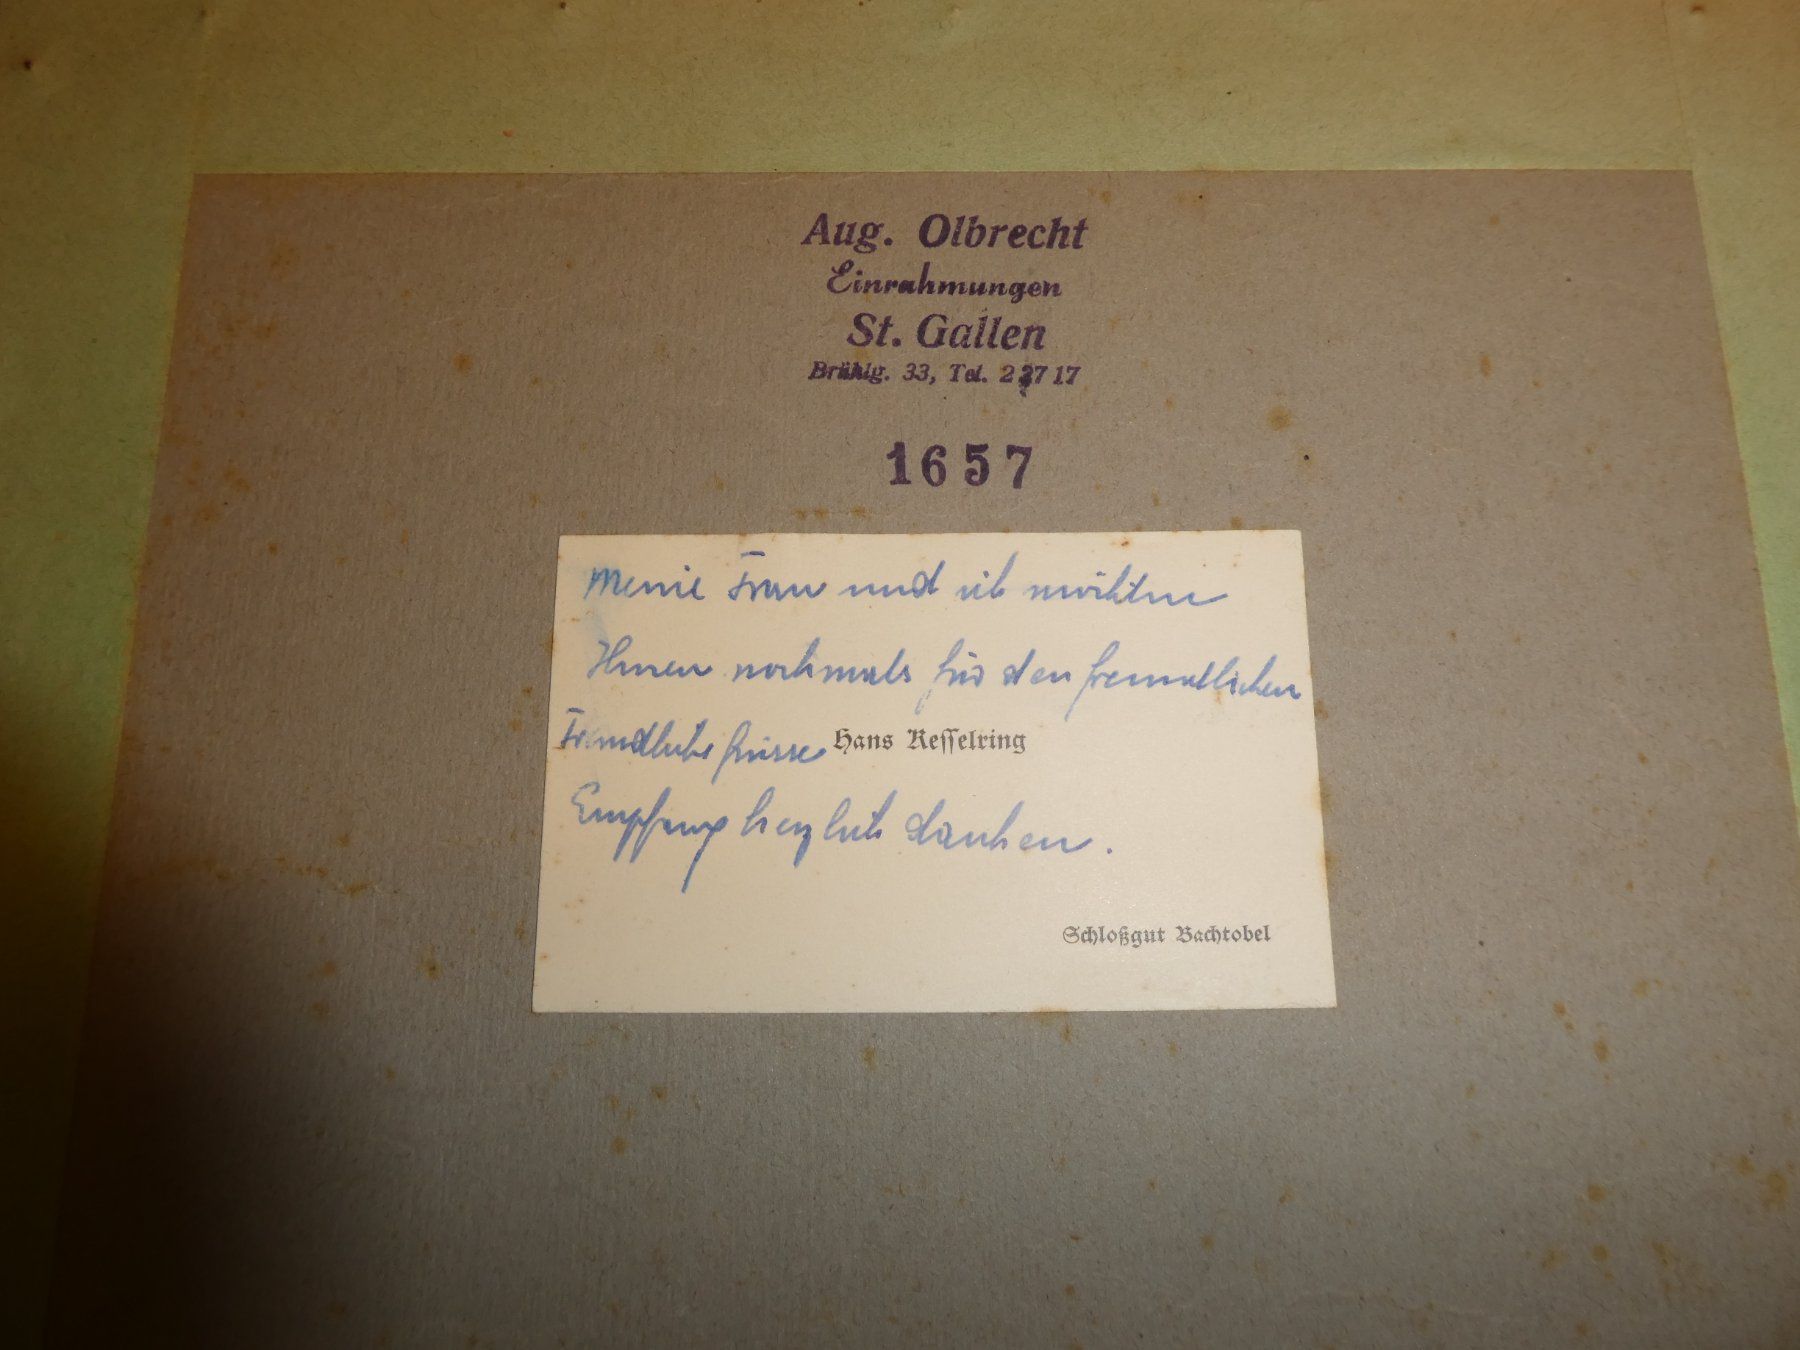 Aug. Olbrecht
Einrahmungen
St. Gallen
Brühlg. 33, Tel. 2 27 17
1657
Meine Frau und ich möchten
Ihnen nochmals für den freundlichen
Freundliche Grüsse Hans Kesselring
Empfang herzlich danken.
Schloßgut Bachtobel